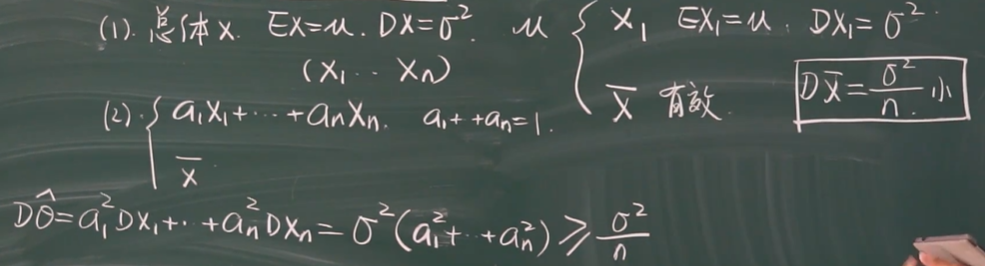 (1). 总体X. EX=μ. DX=σ². μ { X₁ EX₁=μ. DX₁=σ².
(X₁ ·· Xₙ) X̄ 有效. DX̄=σ²/n. 小
(2). { a₁X₁+···+aₙXₙ. a₁+··+aₙ=1.
X̄
Dθ̂=a₁²DX₁+··+aₙ²DXₙ=σ²(a₁²+··+aₙ²)⩾σ²/n